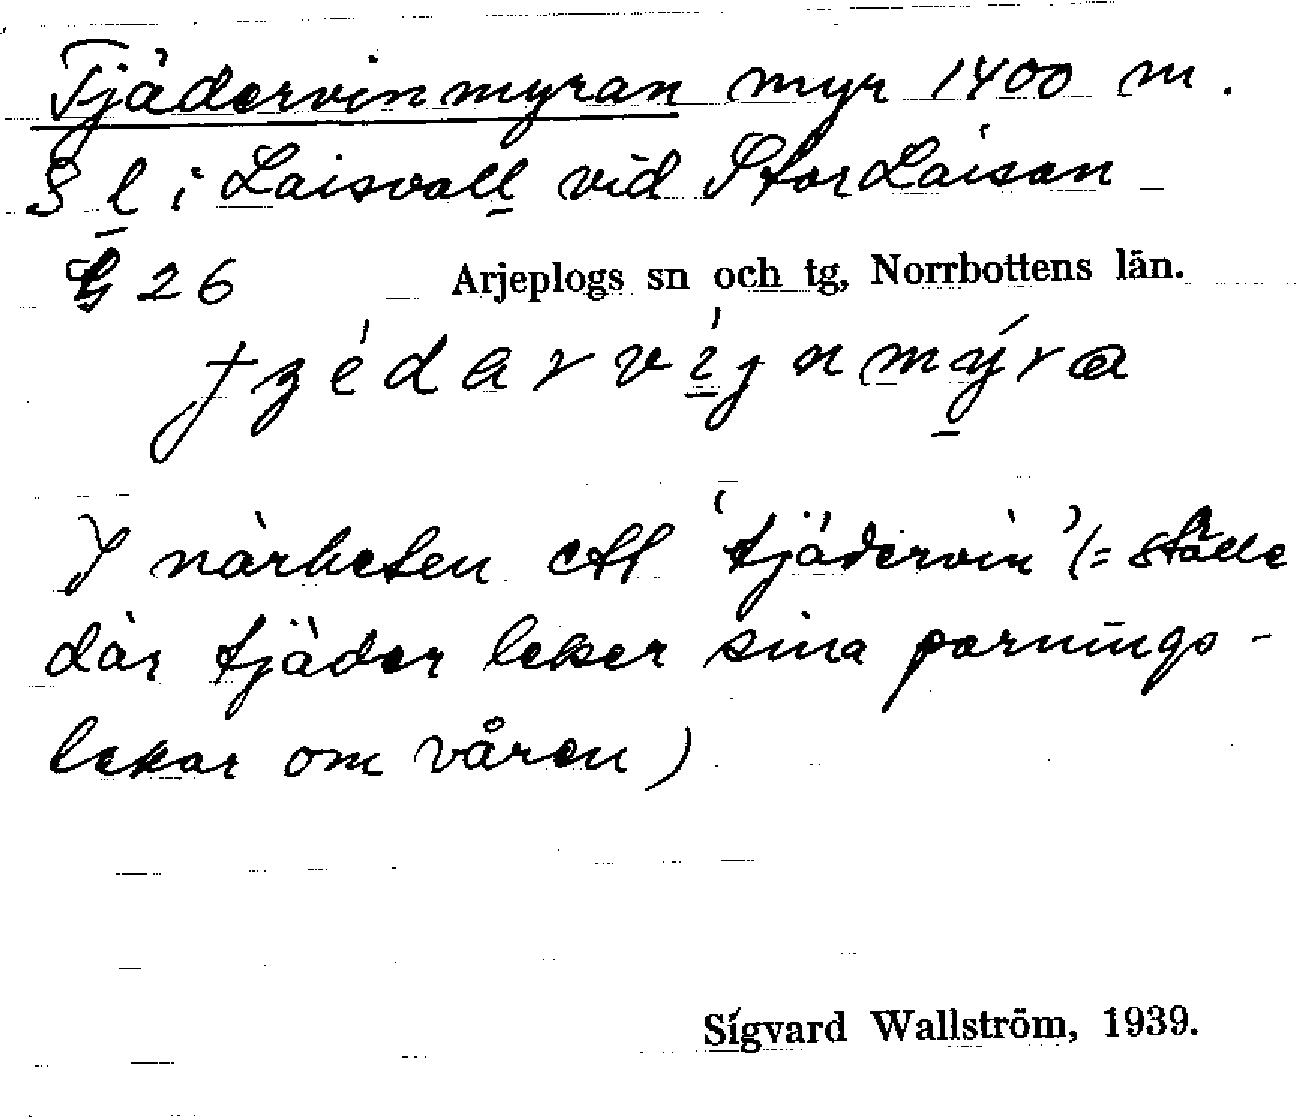 Tjädervinmyran myr 1400 m.
S l i Laisvall vid StorLaisan
G 26 Arjeplogs sn och tg, Norrbottens län.
I närheten ett 'tjädervin' (= ställe
där tjäder leker sina parnings-
lekar om våren)
Sigvard Wallström, 1939.